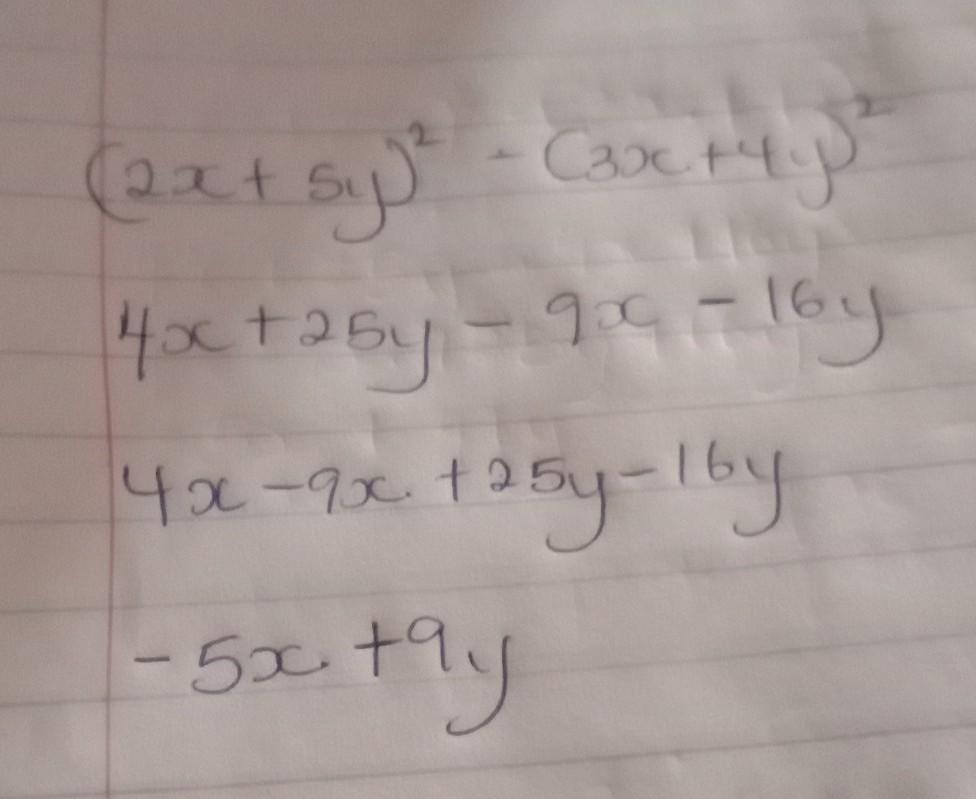 (2x + 5y)² - (3x+4y)²
4x +25y - 9x - 16y
4x -9x +25y-16y
-5x +9y